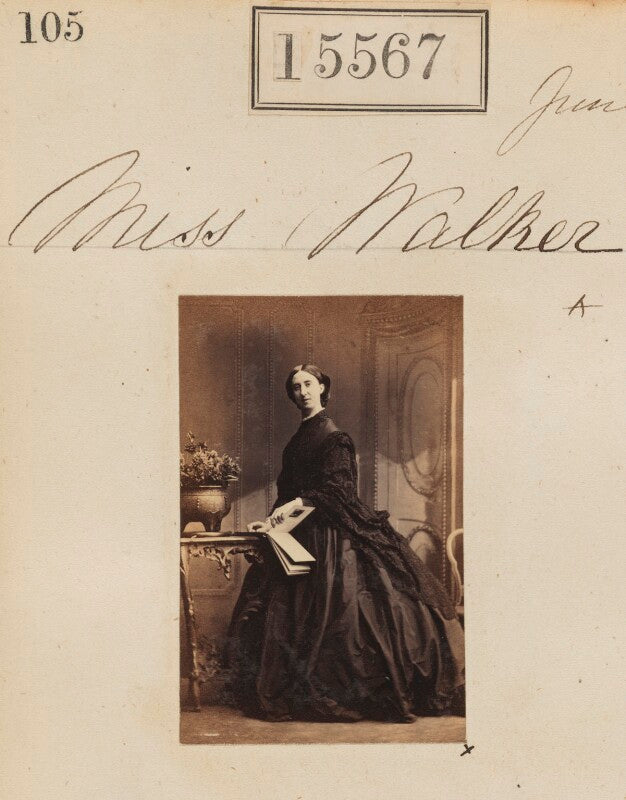 105
15567
Miss Walker